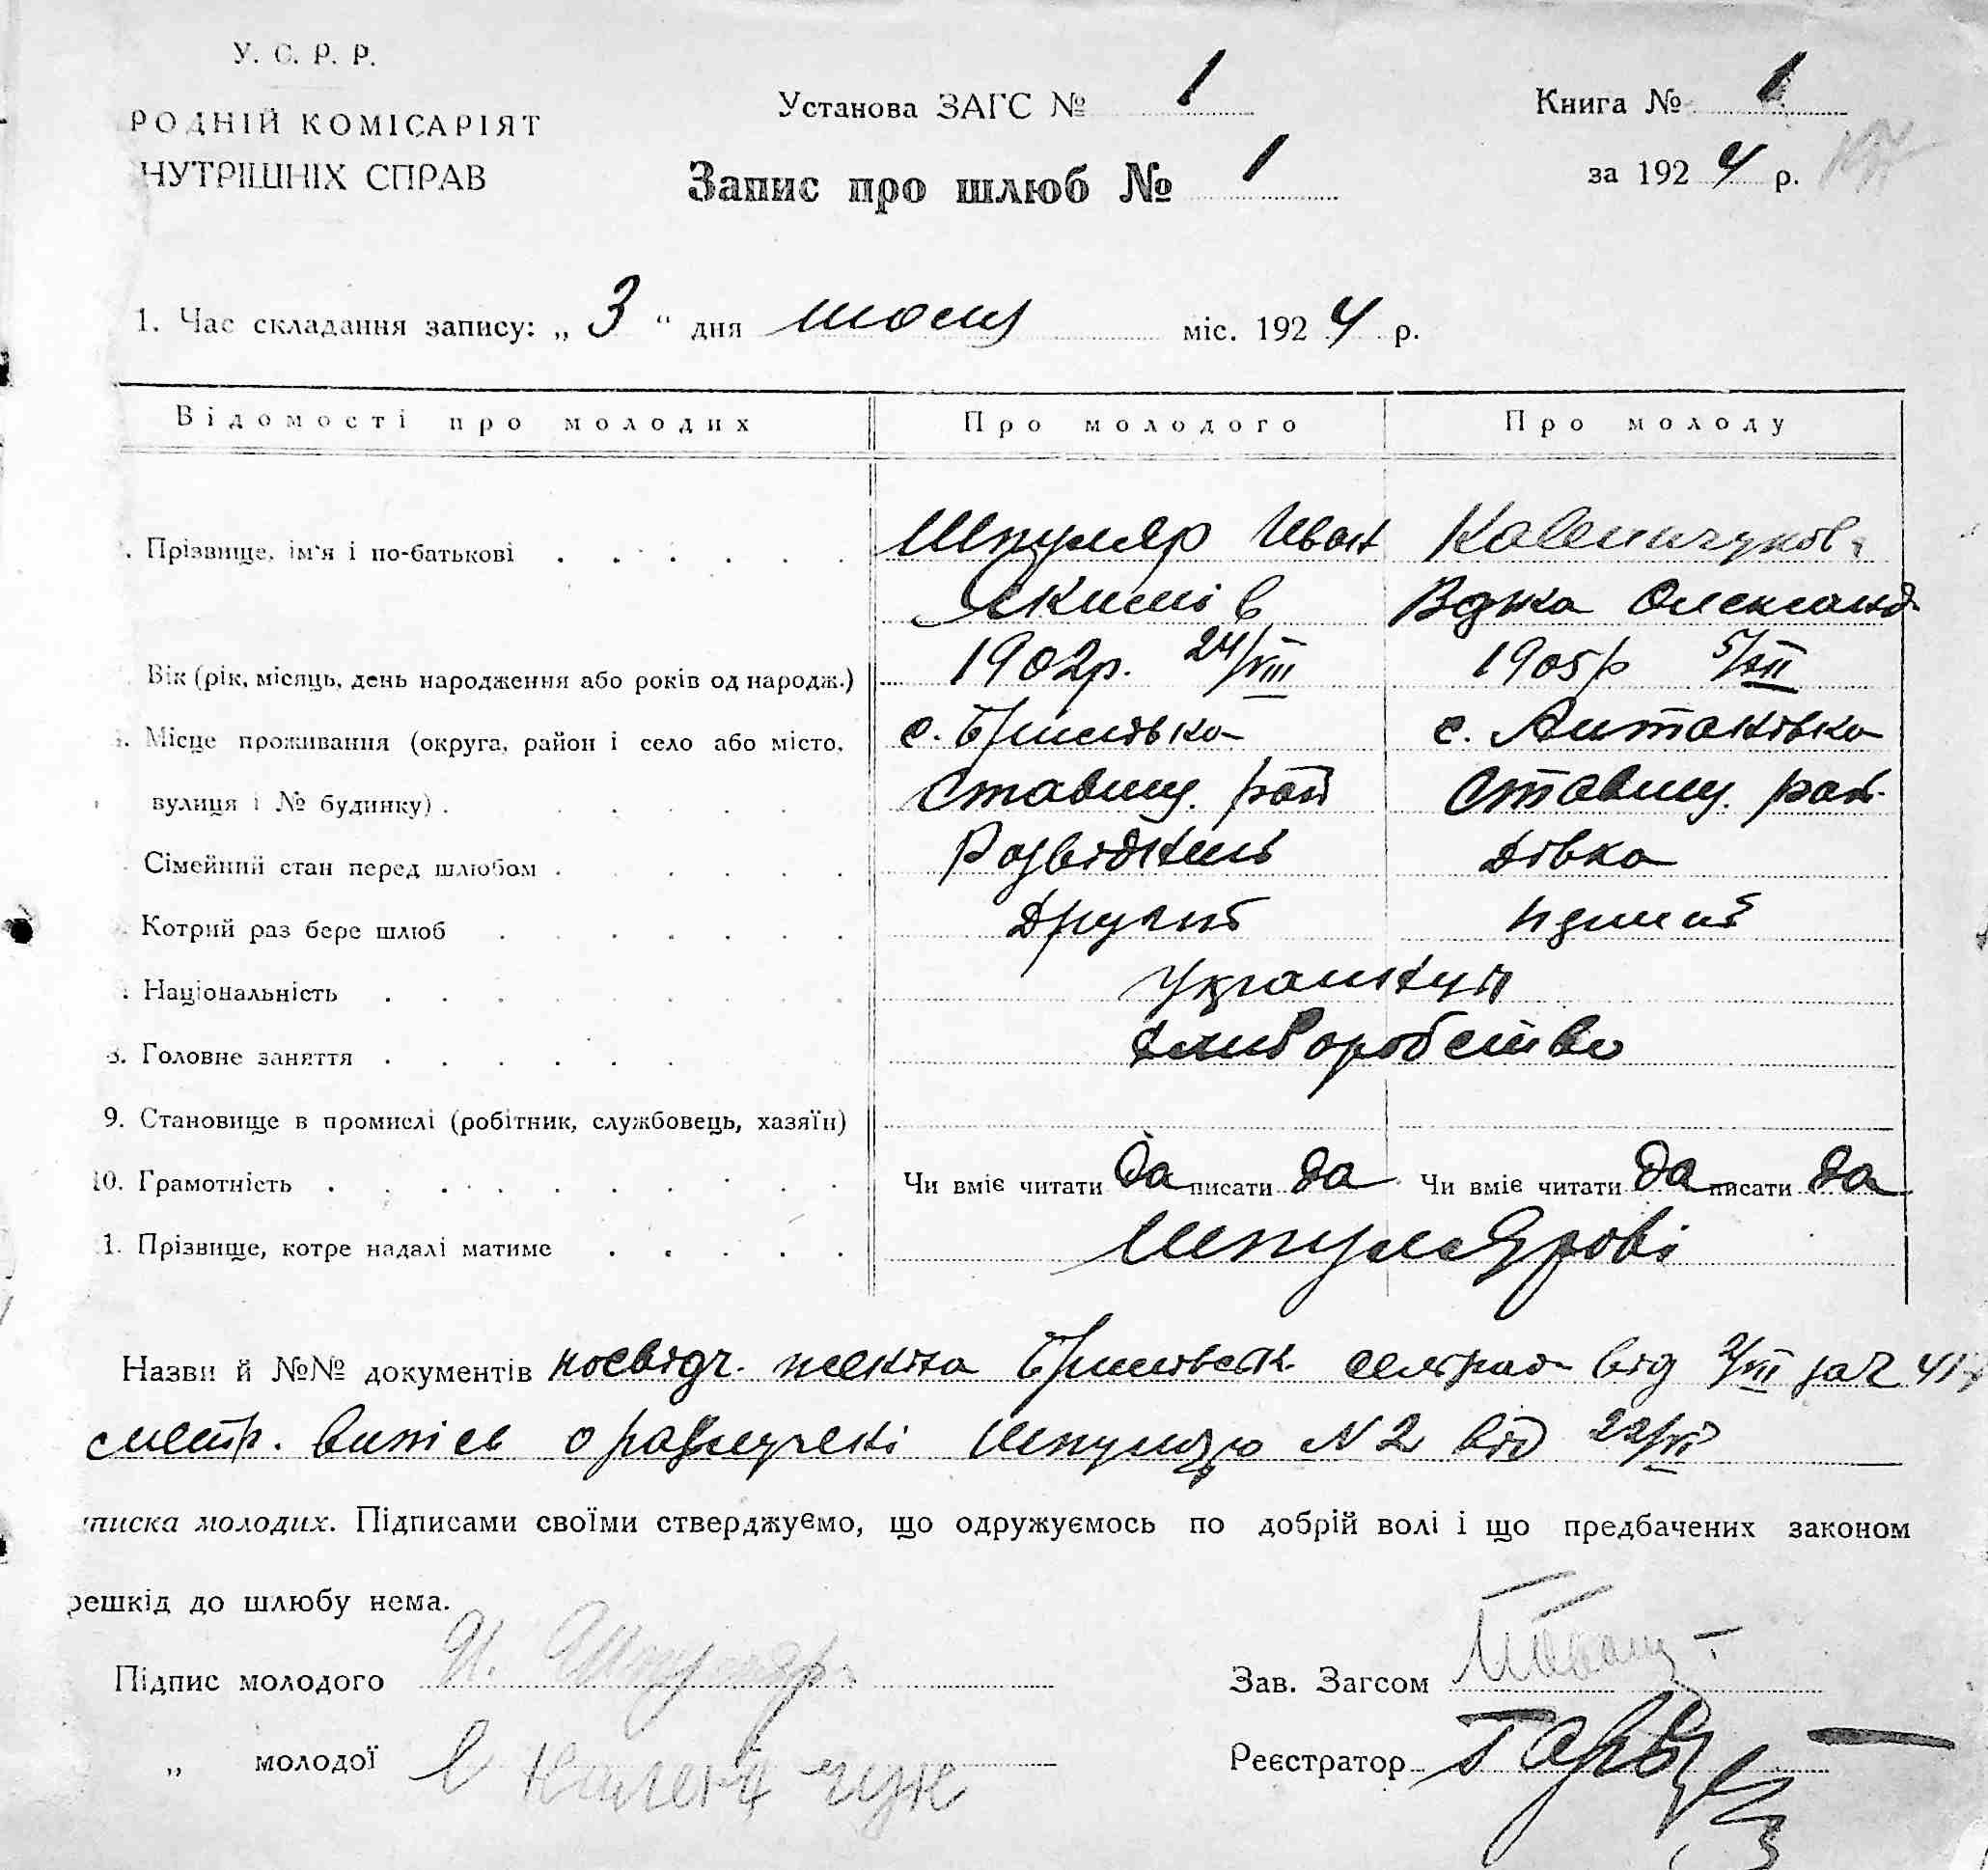 У. С. Р. Р.
РОДНІЙ КОМІСАРІЯТ
НУТРІШНІХ СПРАВ
Установа ЗАГС № 1
Книга № 1
Запис про шлюб № 1
за 1924 р.
1. Час складання запису: „ 3 “ дня міс. 1924 р.
Відомості про молодих Про молодого Про молоду
Прізвище, ім'я і по-батькові Шпуляр Іван
Якимів Олександ
Вік (рік, місяць, день народження або років од народж.) 1902р. 24/VIII 1905р
Місце проживання (округа, район і село або місто, с. с. Антонівка
вулиця і № будинку) Ставищ. рай Ставищ. рай
Сімейний стан перед шлюбом Дівка
Котрий раз бере шлюб Другий
Національність Українці
8. Головне заняття хліборобство
9. Становище в промислі (робітник, службовець, хазяїн)
10. Грамотність Чи вміє читати да писати да Чи вміє читати да писати да
1. Прізвище, котре надалі матиме Шпулярові
Назви й №№ документів посвідч. від
випісь о Шпуляр N 2 від 22/VI
писка молодих. Підписами своїми стверджуємо, що одружуємось по добрій волі і що предбачених законом
решкід до шлюбу нема.
Підпис молодого И. Шпуляр
Зав. Загсом
„ молодої
Реєстратор